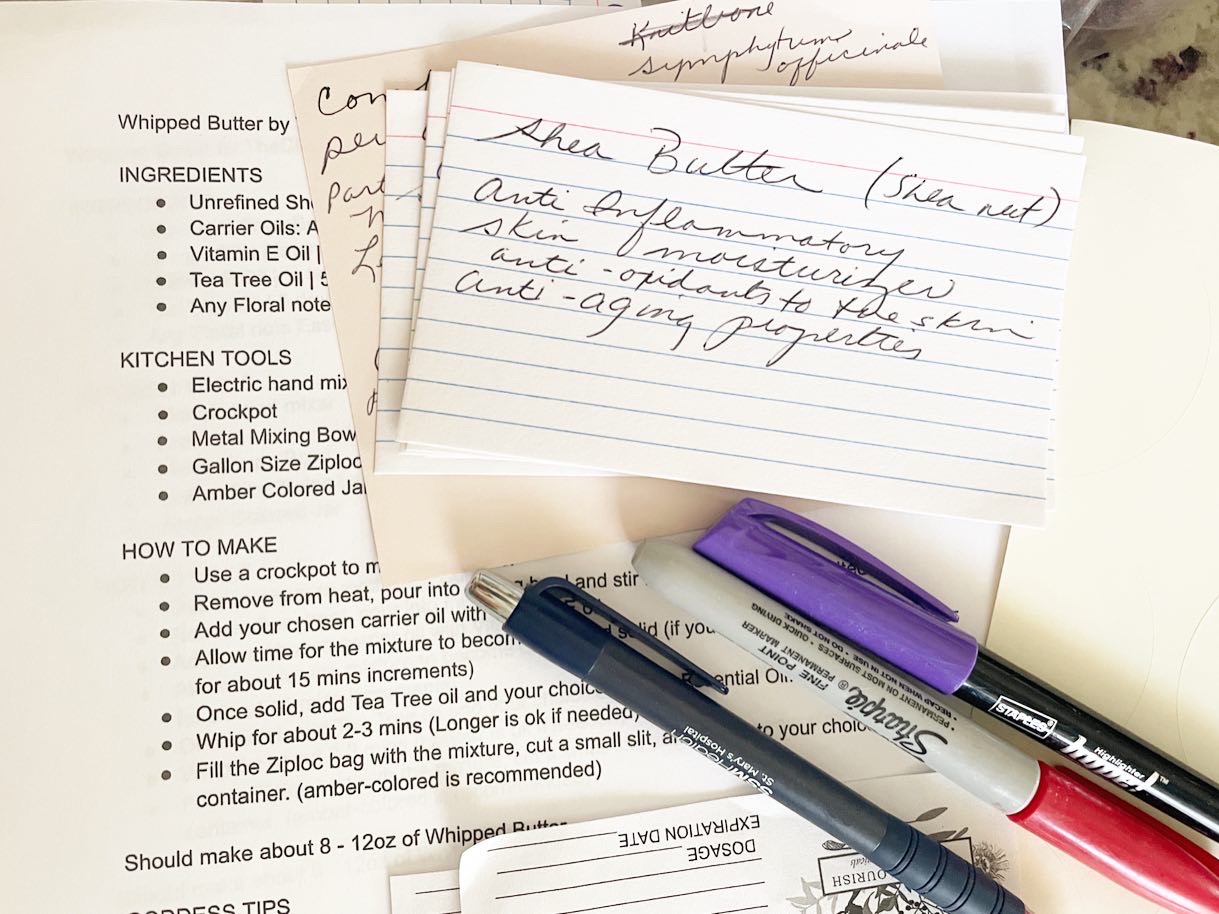 Knitbone
Symphytums
officinale
Shea Butter (Shea nut)
Anti Inflammatory
skin moisturizer
anti-oxidants to the skin
Anti-aging properties
Whipped Butter by
INGREDIENTS
Unrefined Sh
Carrier Oils: A
Vitamin E Oil |
Tea Tree Oil | 5
Any Floral note
KITCHEN TOOLS
Electric hand mix
Crockpot
Metal Mixing Bow
Gallon Size Ziploc
Amber Colored Ja
HOW TO MAKE
Use a crockpot to m
Remove from heat, pour into and stir
Add your chosen carrier oil with
Allow time for the mixture to becom solid (if you
for about 15 mins increments)
Once solid, add Tea Tree oil and your choic ential Oil
Whip for about 2-3 mins (Longer is ok if needed)
Fill the Ziploc bag with the mixture, cut a small slit, a to your choic
container. (amber-colored is recommended)
Should make about 8 - 12oz of Whipped Butter
GODDESS TIPS
Con
per
Part
EXPIRATION DATE
DOSAGE
OURISH
St. Mary's Hospital
Sharpie®
FINE POINT
PERMANENT MARKER
• PERMANENT ON MOST SURFACES • QUICK DRYING
• RECAP WHEN NOT IN USE • DO NOT SHAKE
STAPLES
Highlighter